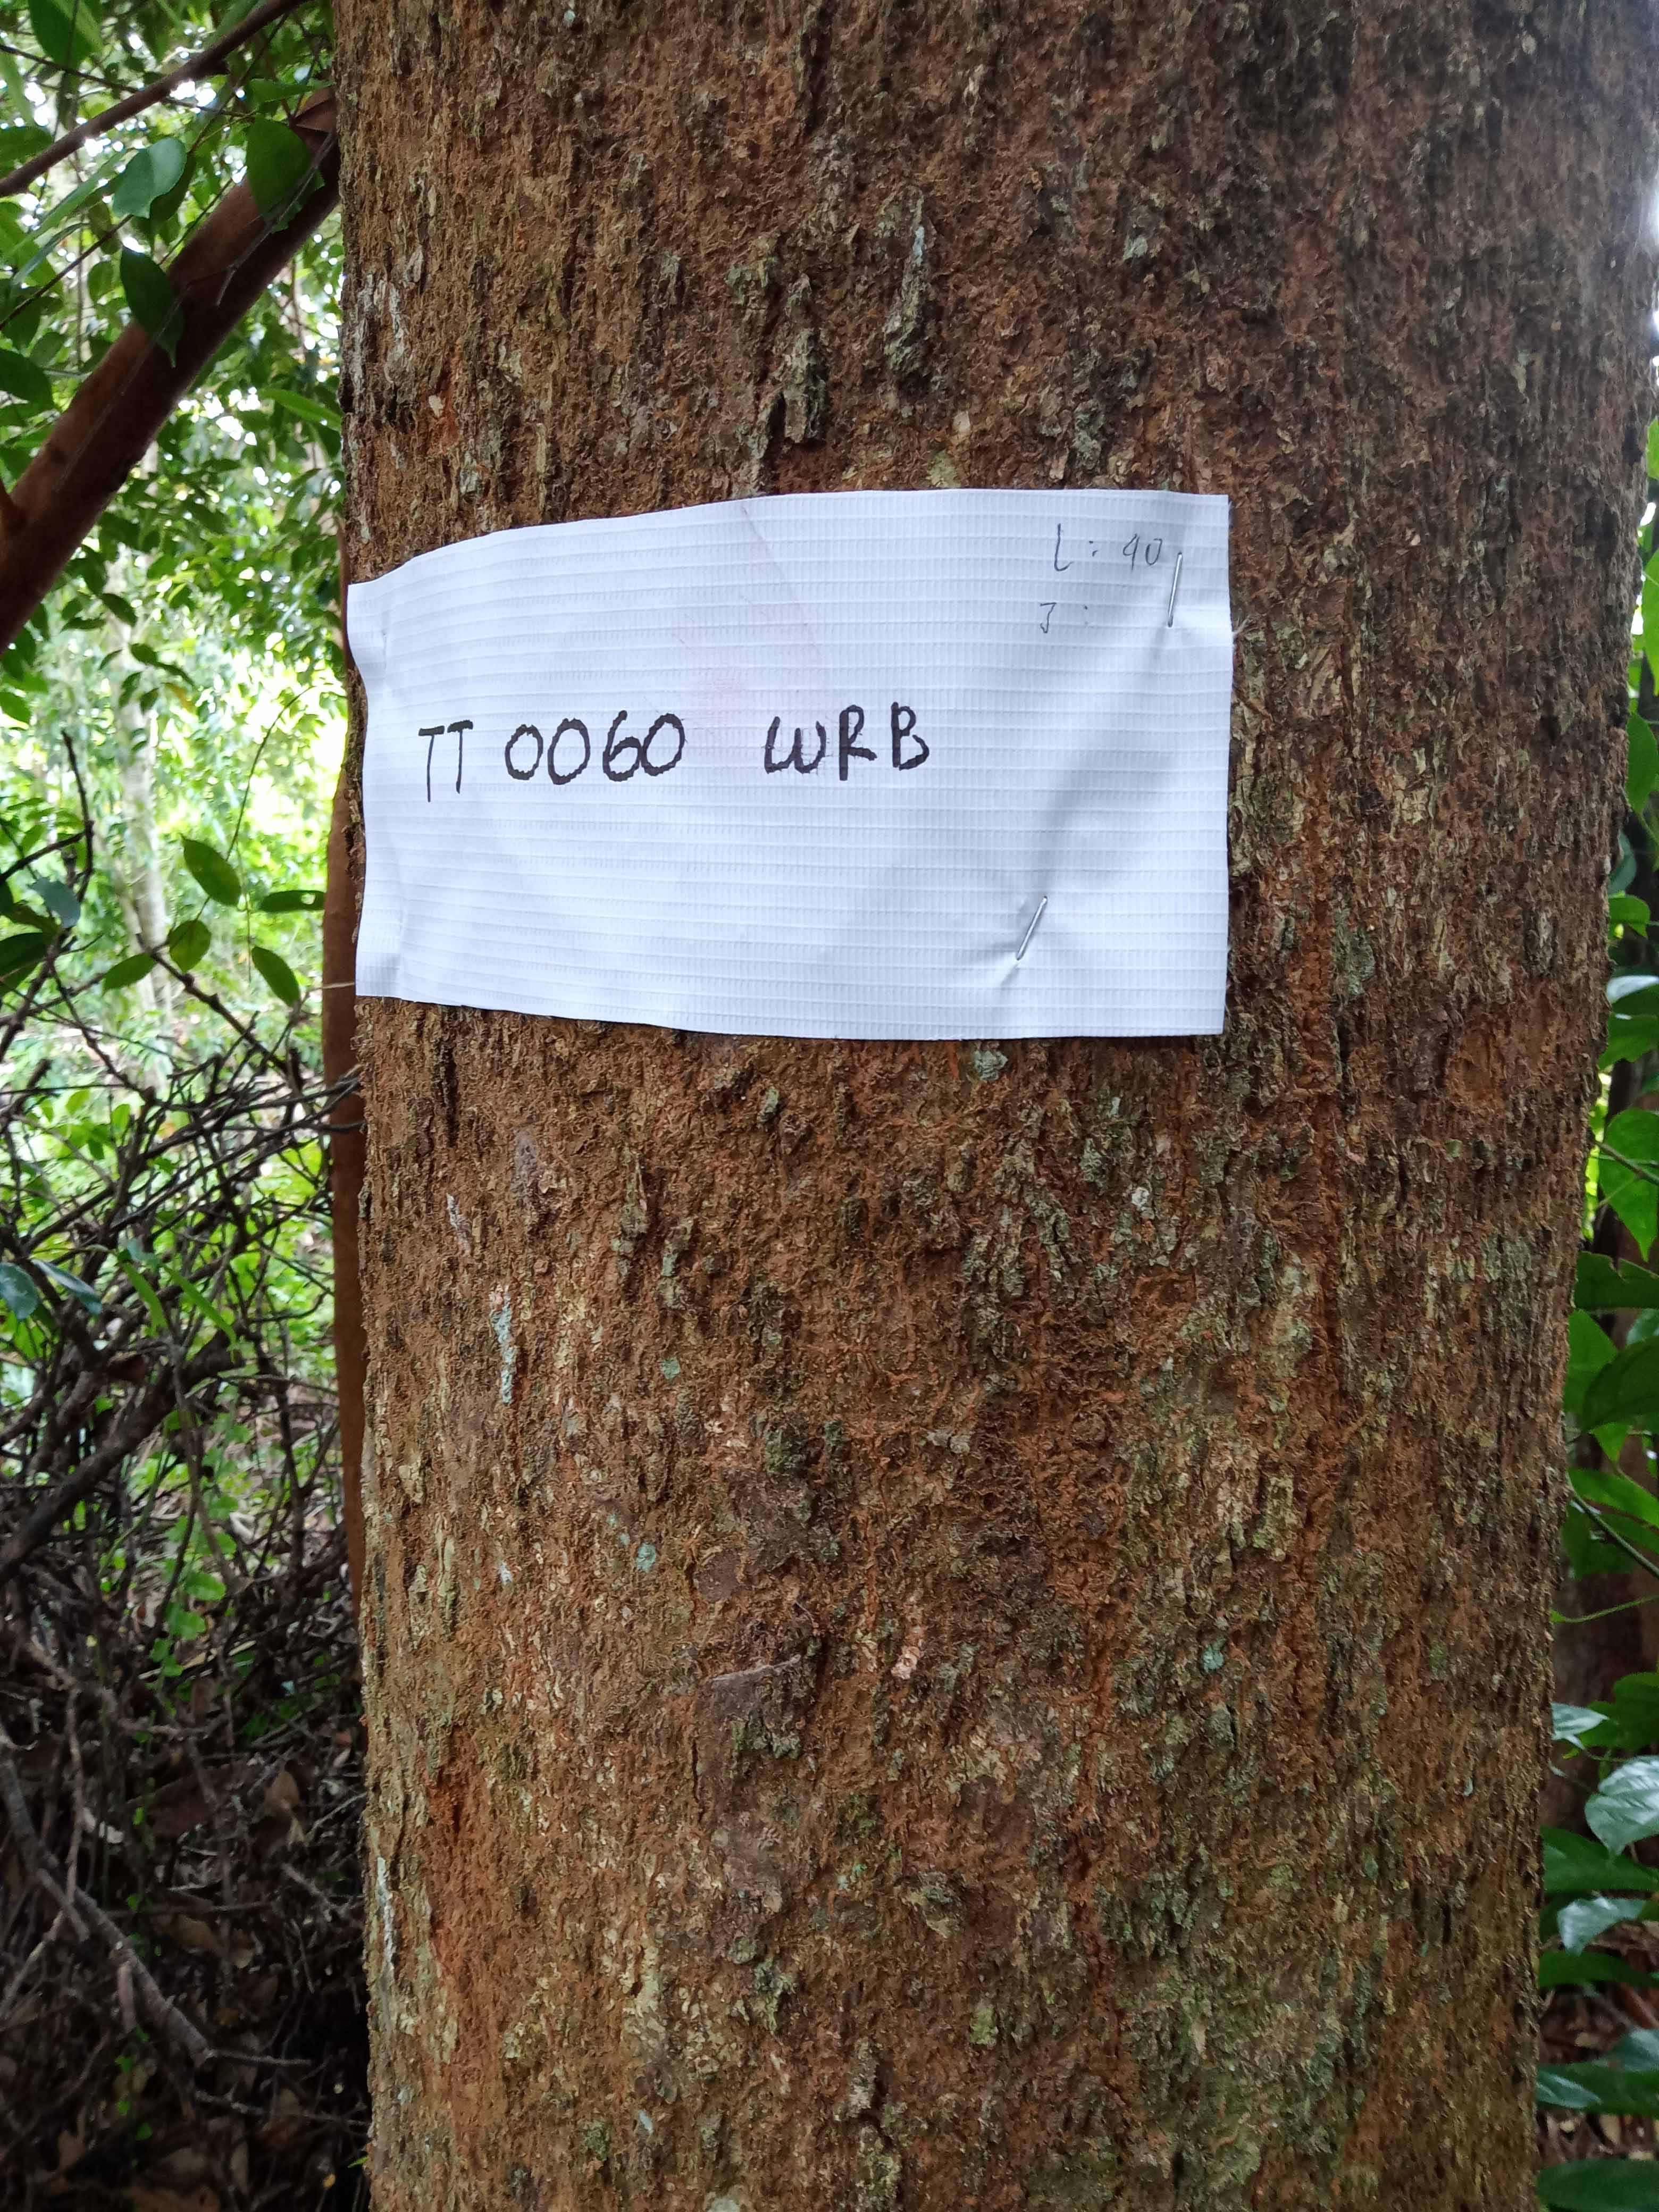 L: 90
J:
TT 0060 WRB